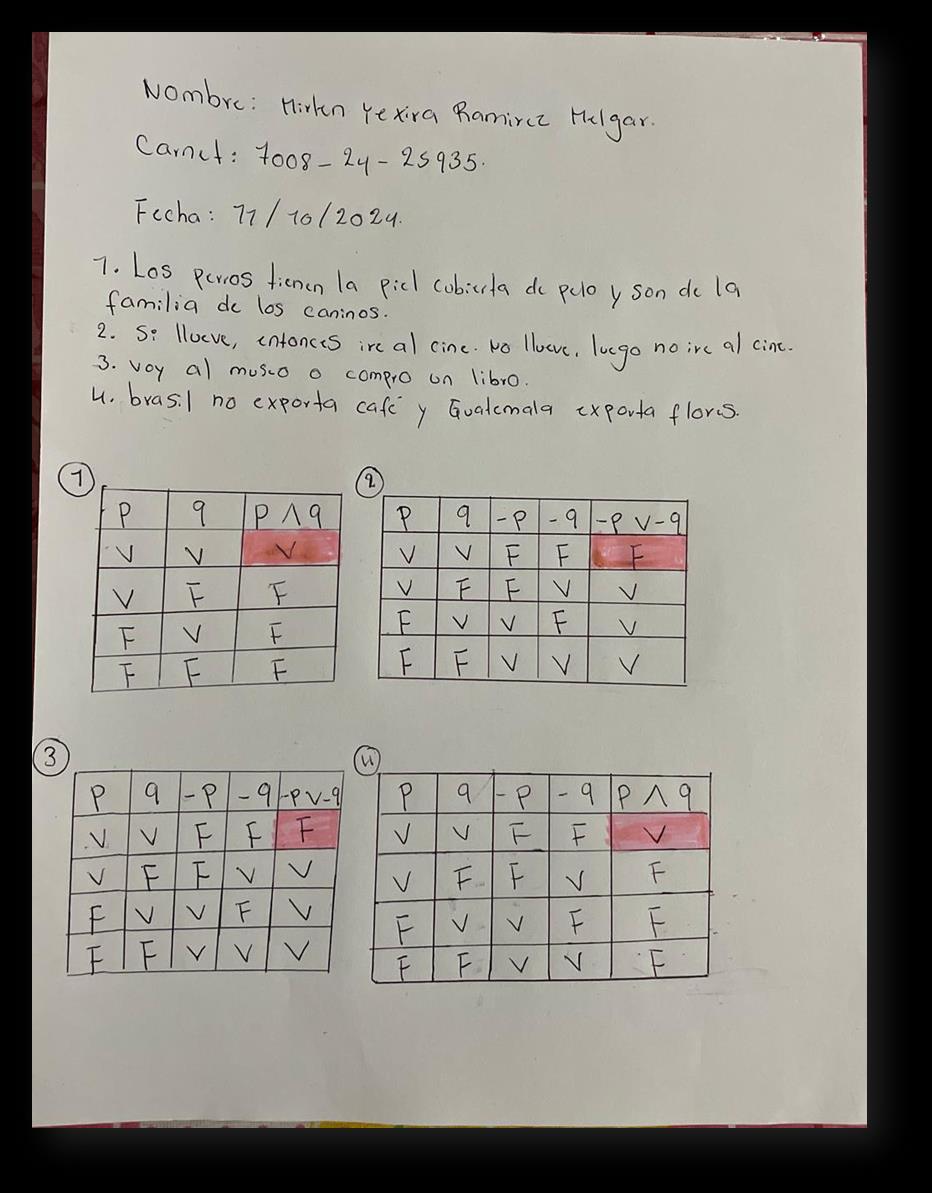 Nombre: Mirlen Yexira Ramirez Melgar.
Carnet: 7008-24-25935.
Fecha: 11/10/2024.
1. Los perros tienen la piel cubierta de pelo y son de la
familia de los caninos.
2. Si llueve, entonces ire al cine. No llueve, luego no ire al cine.
3. voy al museo o compro un libro.
4. brasil no exporta café y Guatemala exporta flores.
1
p q p ∧ q
V V V
V F F
F V F
F F F
2
p q -p -q -p v -q
V V F F F
V F F V V
F V V F V
F F V V V
3
p q -p -q -p v -q
V V F F F
V F F V V
F V V F V
F F V V V
4
p q -p -q p ∧ q
V V F F V
V F F V F
F V V F F
F F V V F